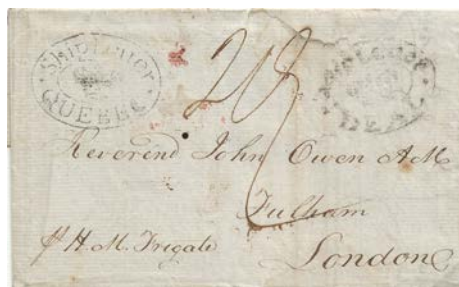 SHIP LETTER
QUEBEC
SHIP LETTER
DEAL
Reverend John Owen A M
Fulham
London
p H. M. Frigate